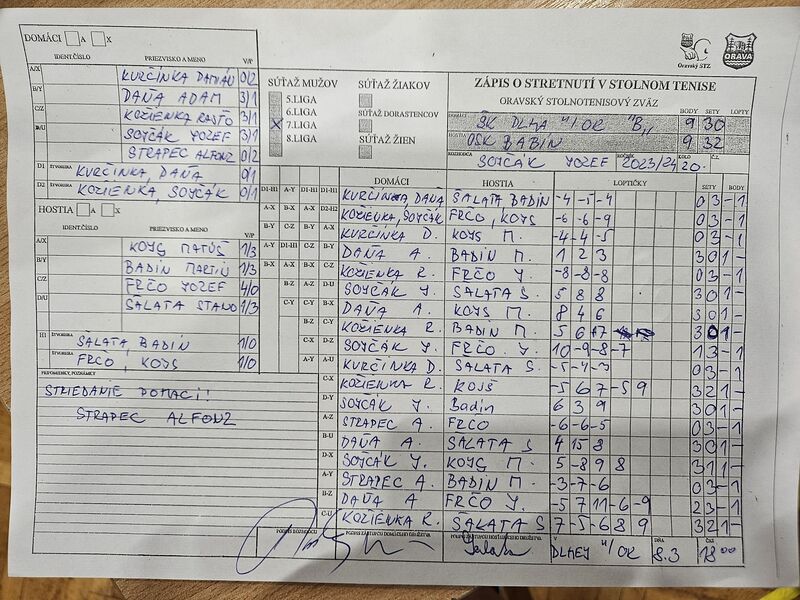 DOMÁCI A X
IDENT.ČÍSLO PRIEZVISKO A MENO V/P
A/X KURČINKA DAMIÁN 0/2
B/Y DAŇA ADAM 3/1
C/Z KOŽIENKA RASŤO 3/1
D/U SOJČÁK JOZEF 3/1
STRAPEC ALFONZ 0/2
D1 ŠTVORHRA KURČINKA, DAŇA 0/1
D2 ŠTVORHRA KOŽIENKA, SOJČÁK 0/1
HOSTIA A X
IDENT.ČÍSLO PRIEZVISKO A MENO V/P
A/X KOJS MATÚŠ 1/3
B/Y BADÍN MARTIN 1/3
C/Z FRČO JOZEF 4/0
D/U SALATA STANO 1/3
H1 ŠTVORHRA ŠALATA, BADÍN 1/0
ŠTVORHRA FRČO, KOJS 1/0
PRIPOMIENKY, POZNÁMKY
STRIEDANIE DOMACI!
STRAPEC ALFONZ
SÚŤAŽ MUŽOV
5.LIGA
6.LIGA
X 7.LIGA
8.LIGA
SÚŤAŽ ŽIAKOV
SÚŤAŽ DORASTENCOV
SÚŤAŽ ŽIEN
Oravský STZ
ORAVA
ZÁPIS O STRETNUTÍ V STOLNOM TENISE
ORAVSKÝ STOLNOTENISOVÝ ZVÄZ
BODY SETY LOPTY
DOMÁCI ŠK DLHÁ N/OR "B" 9 30
HOSTIA OŠK BABÍN 9 32
ROZHODCA SOJČÁK JOZEF 2023/24 KOLO 20.
DOMÁCI HOSTIA LOPTIČKY SETY BODY
D1-H1 A-Y D1-H1 D1-H1 KURČINKA, DAŇA ŠALATA BADÍN -4 -5 -4 0 3 -1
A-X B-X A-X D2-H2 KOŽIENKA, SOJČÁK FRČO, KOJS -6 -6 -9 0 3 -1
B-Y C-Y B-Y A-X KURČINKA D. KOJS M. -4 -4 -5 0 3 -1
A-Y D1-H1 C-Z B-Y DAŇA A. BADÍN M. 1 2 3 3 0 1-
B-X A-X B-X C-Z KOŽIENKA R. FRČO J. -8 -8 -8 0 3 -1
B-Z A-Z D-U SOJČÁK J. SALATA S. 5 8 8 3 0 1-
C-Y C-Y B-X DAŇA A. KOJS M. 8 4 6 3 0 1-
B-Z C-Y KOŽIENKA R. BADÍN M. 5 6 17 3 0 1-
C-X D-Z SOJČÁK J. FRČO J. 10 -9 -8 -7 1 3 -1
A-Y A-U KURČINKA D. SALATA S. -5 -4 -3 0 3 -1
C-X KOŽIENKA R. KOJŠ -5 6 7 -5 9 3 2 1-
D-Y SOJČÁK J. Badín 6 3 9 3 0 1-
A-Z STRAPEC A. FRČO -6 -6 -5 0 3 -1
B-U DAŇA A. SALATA S 4 15 8 3 0 1-
D-X SOJČÁK J. KOJS M. 5 -8 9 8 3 1 1-
A-Y STRAPEC A. BADÍN M. -3 -7 -6 0 3 -1
B-Z DAŇA A FRČO J. -5 7 11 -6 -9 2 3 -1
C-U KOŽIENKA R. ŠALATA S 7 -5 -6 8 9 3 2 1-
PODPIS ROZHODCU PODPIS ZÁSTUPCU DOMÁCEHO DRUŽSTVA PODPIS ZÁSTUPCU HOSŤUJÚCEHO DRUŽSTVA V DLHEJ N/OR DŇA 8.3 ČAS 18 00